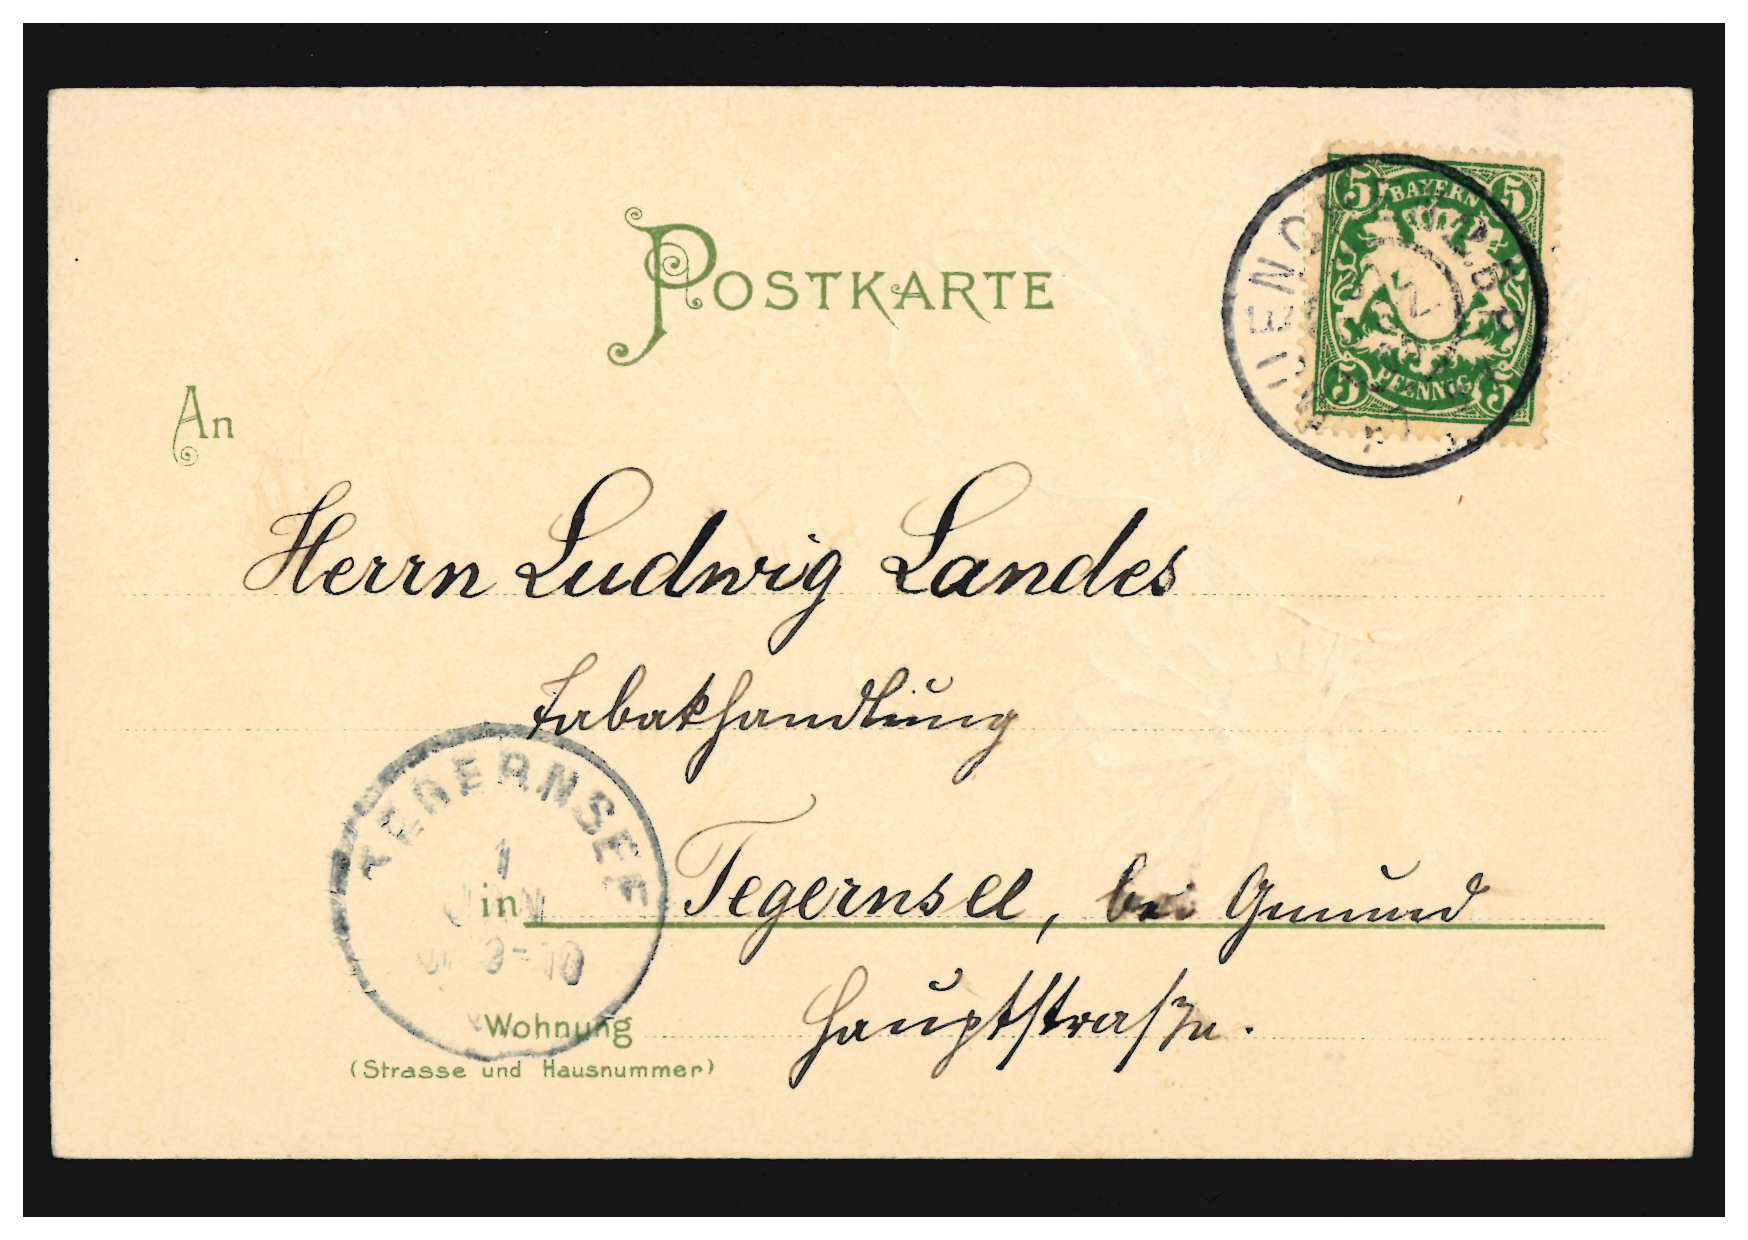 POSTKARTE
5 BAYERN 5
5 PFENNIG 5
An
Herrn Ludwig Landes
Tabakhandlung
TEGERNSEE
1
in Tegernsee, bei Gmund
9-10
Wohnung Hauptstraße.
(Strasse und Hausnummer)